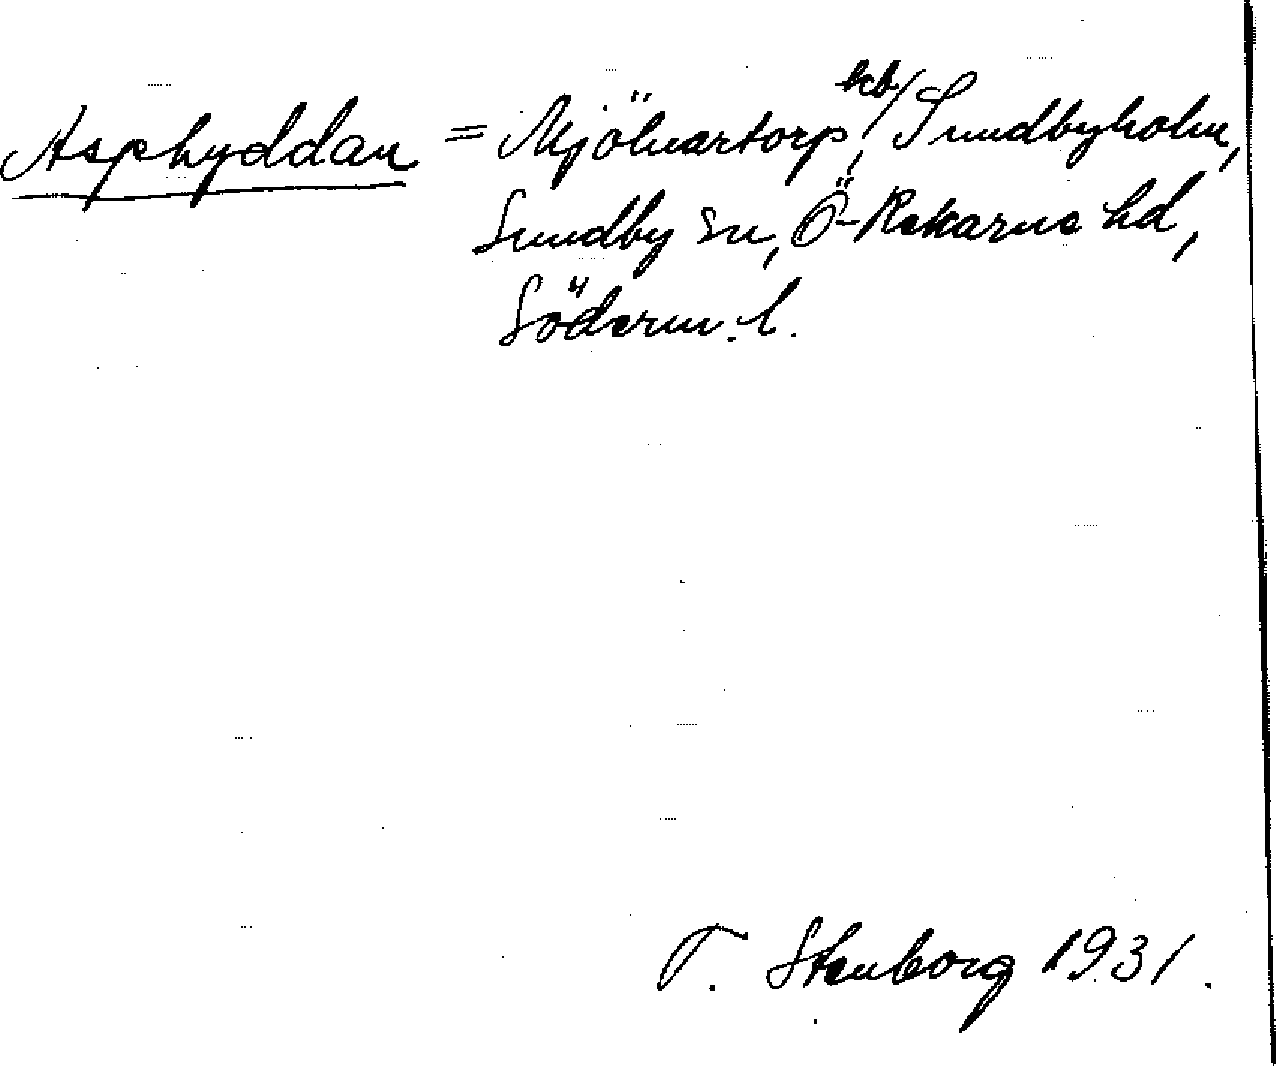 Asphyddan = Mjölnartorp, beb/ Sundbyholm,
Sundby sn, Ö-Rekarne hd,
Söderm. l.
T. Stenborg 1931.